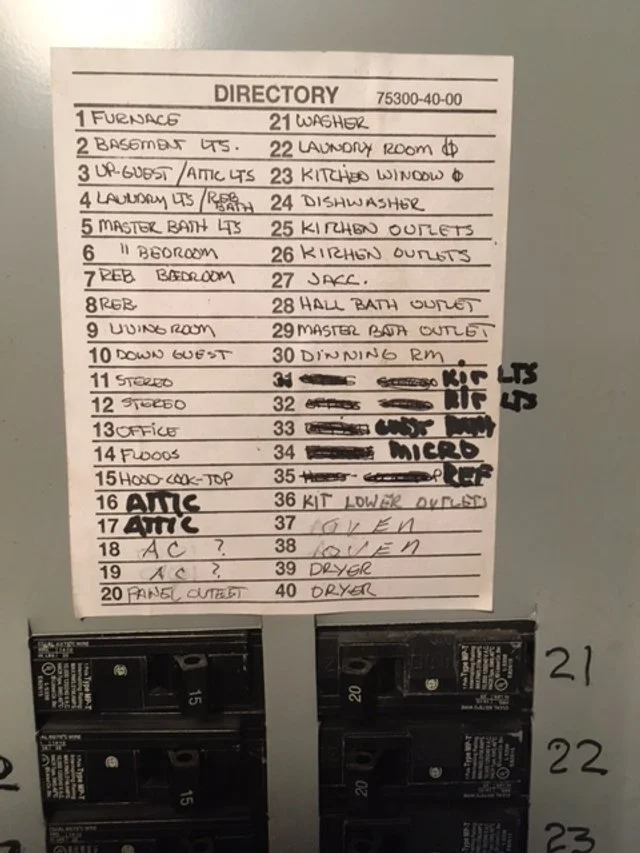 DIRECTORY 75300-40-00
1 FURNACE 21 WASHER
2 BASEMENT LTS. 22 LAUNDRY ROOM
3 UP-GUEST/ATTIC LTS 23 KITCHED WINDOW
4 LAUNDRY LTS/REB BATH 24 DISHWASHER
5 MASTER BATH LTS 25 KITCHEN OUTLETS
6 " BEDROOM 26 KITCHEN OUTLETS
7 REB BEDROOM 27 JACC.
8 REB 28 HALL BATH OUTLET
9 LIVING ROOM 29 MASTER BATH OUTLET
10 DOWN GUEST 30 DINNING RM
11 STEREO 31 KIT LTS
12 STEREO 32 KIT LTS
13 OFFICE 33
14 FLOODS 34 MICRO
15 HOOD-COOK-TOP 35 REF
16 ATTIC 36 KIT LOWER OUTLETS
17 ATTIC 37 OVEN
18 AC ? 38 OVEN
19 AC ? 39 DRYER
20 PANEL OUTLET 40 DRYER
15 20 21
15 20 22
23